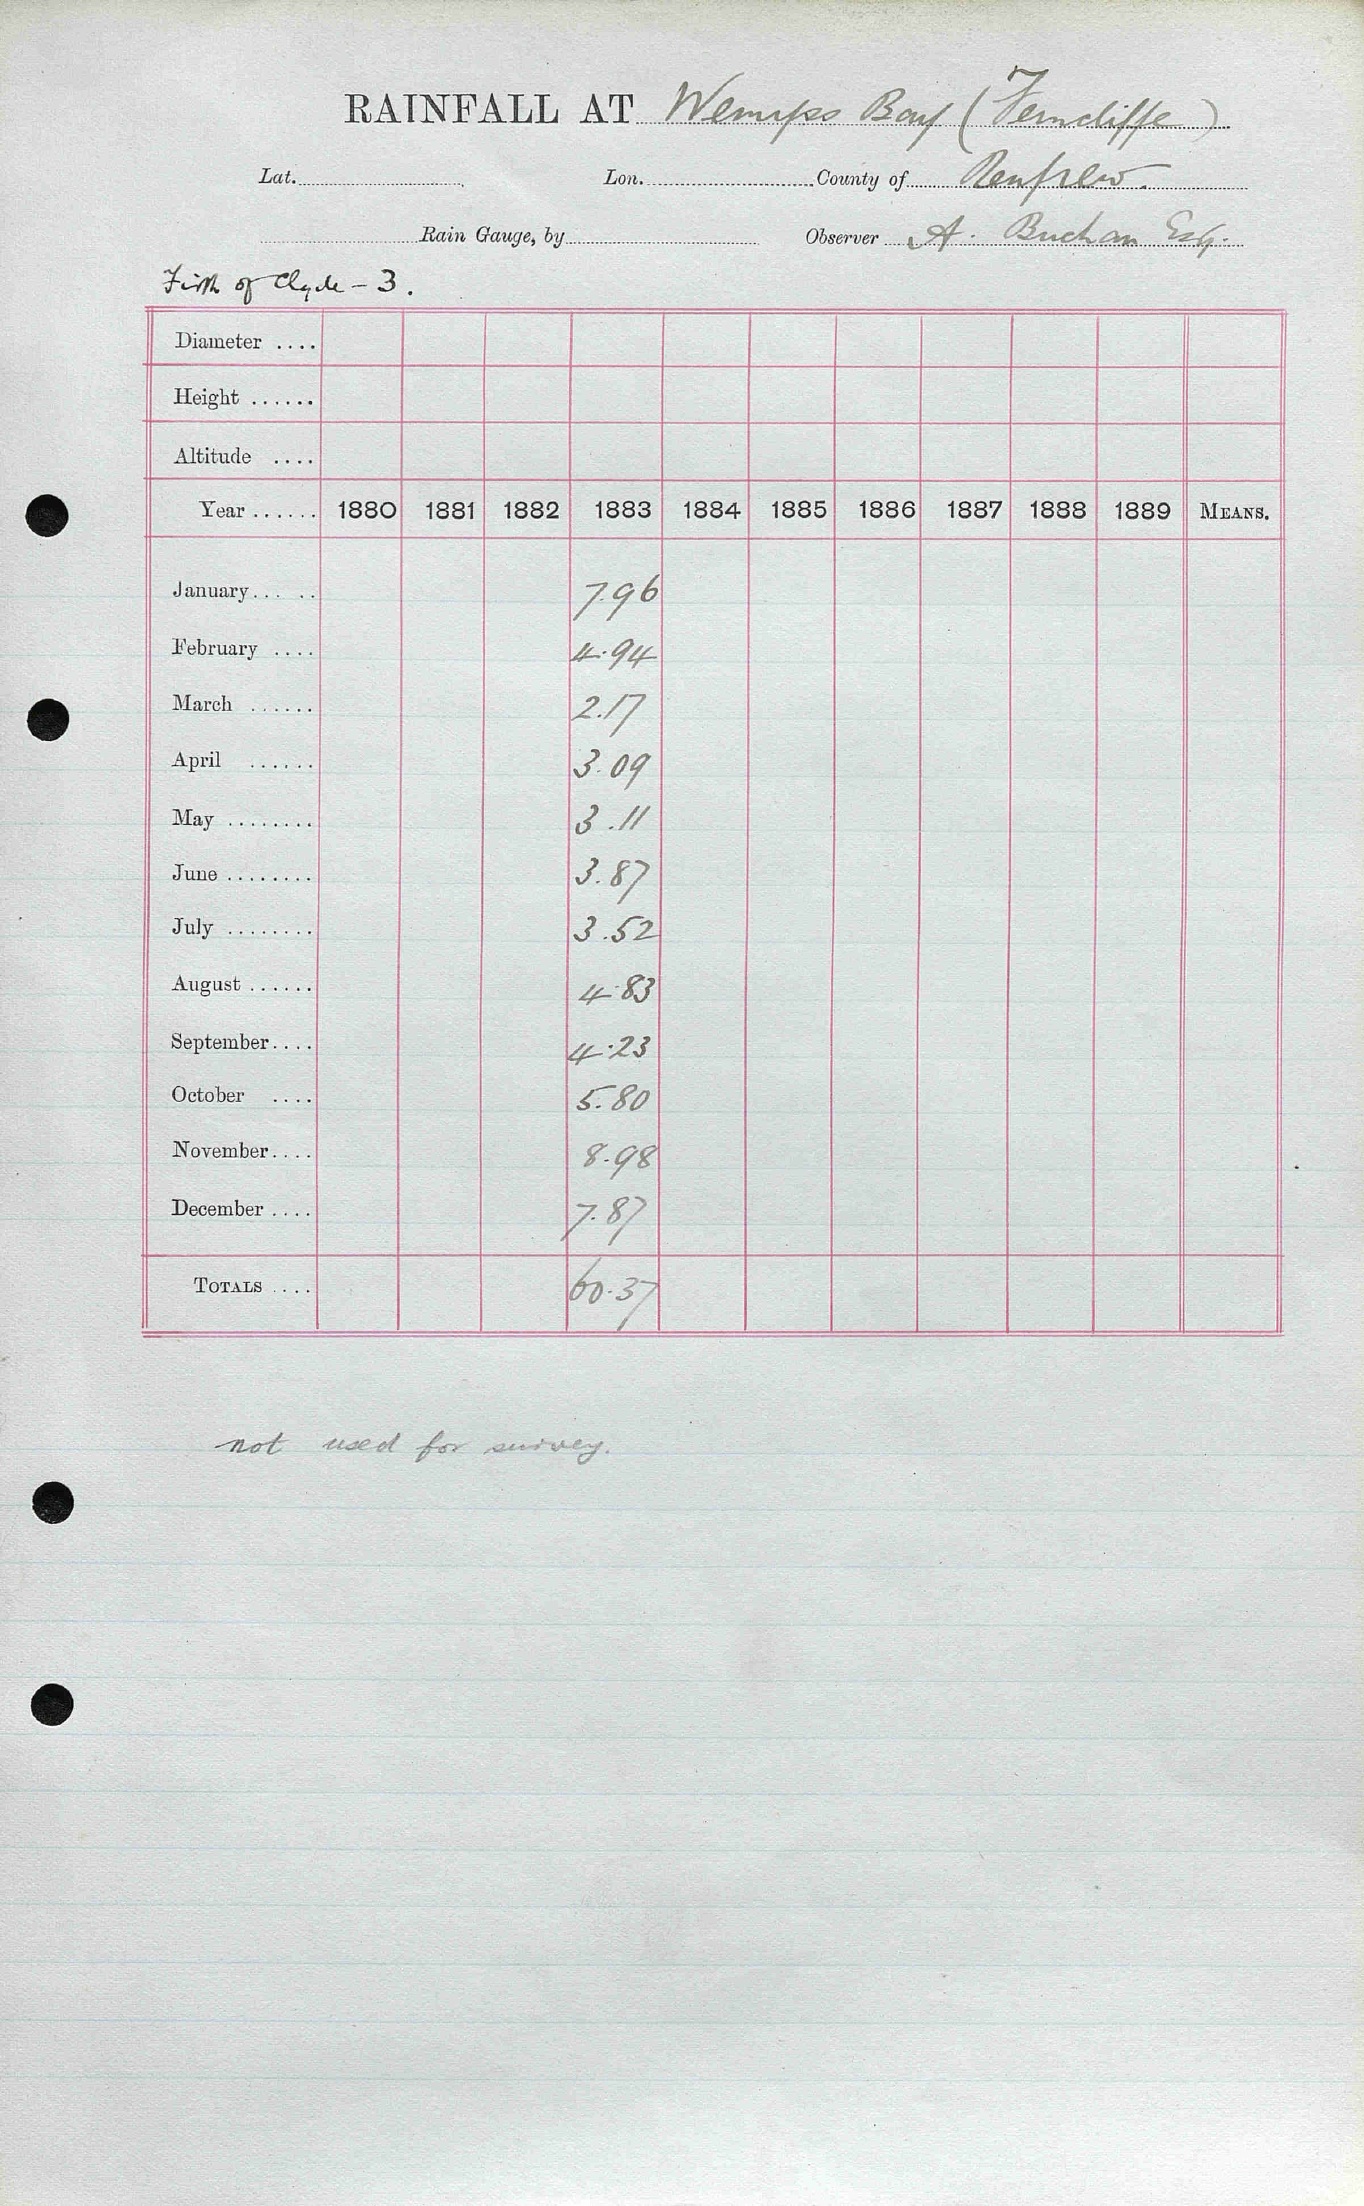 RAINFALL AT Wemyss Bay (Ferncliffe)
Lat. Lon. County of Renfrew.
Rain Gauge, by Observer A. Buchan Esq.
Firth of Clyde - 3.
Diameter ....
Height ......
Altitude ....
Year ...... 1880 1881 1882 1883 1884 1885 1886 1887 1888 1889 MEANS.
January... .. 7.96
February .... 4.94
March ...... 2.17
April ...... 3.09
May ........ 3.11
June ........ 3.87
July ........ 3.52
August ...... 4.83
September.... 4.23
October .... 5.80
November.... 8.98
December .... 7.87
TOTALS .... 60.37
not used for survey.